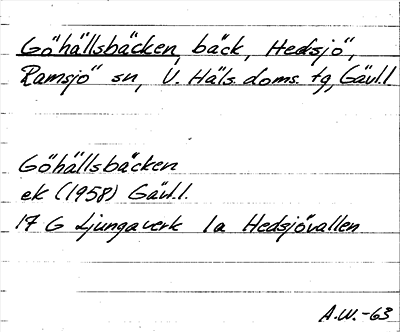 Göhällsbäcken, bäck, Hedsjö,
Ramsjö sn, V. Häls. doms. tg, Gävl.l.
Göhällsbäcken
ek (1958) Gävl.l.
17 G Ljungaverk 1a Hedsjövallen
A.W.-63